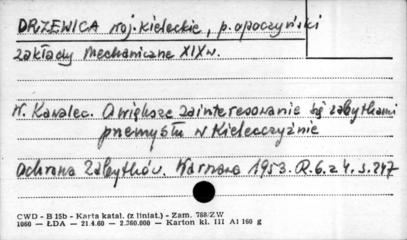 DRZEWICA woj. kieleckie, p. opoczyński
zakłady mechaniczne XIX w.
W. Kawalec. O większe zainteresowanie się zabytkami
przemysłu w Kielecczyźnie
Ochrona Zabytków. Warszawa 1953. R. 6. z 4. s. 247
CWD - B 15b - Karta katal. (z liniat.) - Zam. 788/ZW
1060 — ŁDA — 21.4.60 - 2.360.000 — Karton kl. III A1 160 g